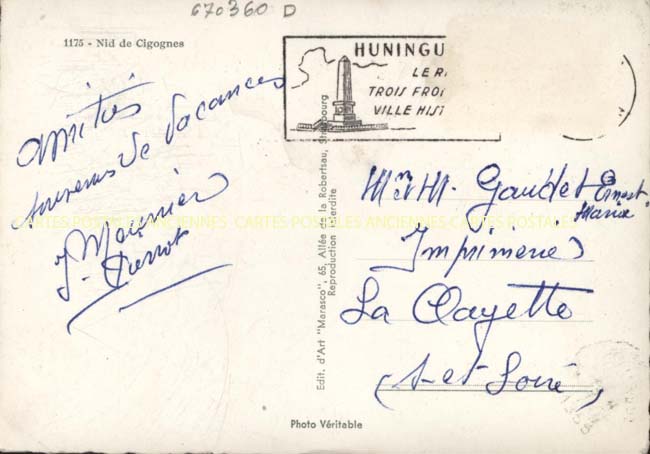 670360 D
1175 - Nid de Cigognes
HUNINGU
LE R
TROIS FRO
VILLE HIST
amitiés
de Vacances
J. Meunier
Pierrot
Mr M. Gaudet Ernest
Marie
Imprimerie
La Clayette
(S-et-Loire)
CARTES POSTALES ANCIENNES CARTES POSTALES ANCIENNES CARTES POSTALES
Edit. d'Art "Marasco", 65, Allée de la Robertsau, Strasbourg
Reproduction interdite
Photo Véritable